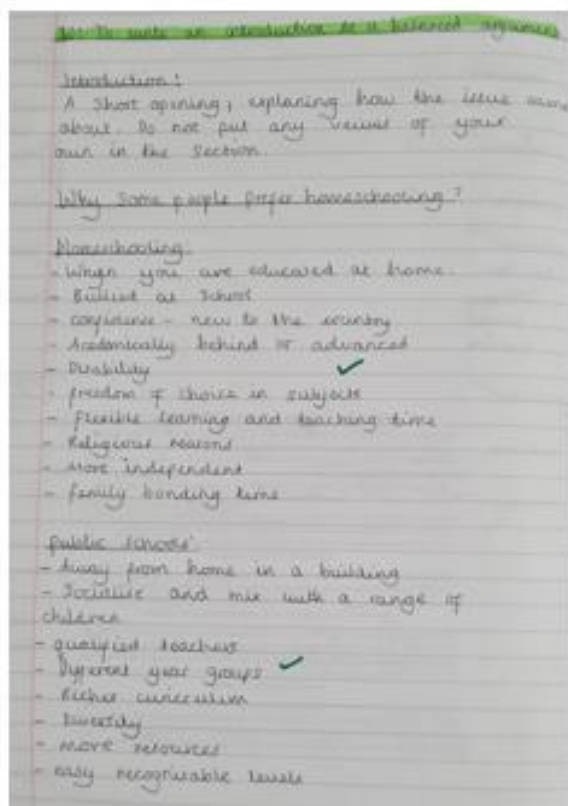 LO: To write an introduction to a balanced argumen
Introduction:
A short opening, explaning how the issue came
about. Do not put any views of your
own in the section.
Why some people prefer homeschooling?
Homeschooling:
- When you are educated at home.
- Bullied at school
- confidence - new to the country
- Academically behind or advanced
- Disability
- freedom of choice in subjects
- Flexible learning and teaching time
- Religious reasons
- More independent
- family bonding time
public schools:
- Away from home in a building
- Socialise and mix with a range of
children
- qualified teachers
- Different year groups
- Richer curriculum
- Diversity
- more resources
- easy recognisable levels